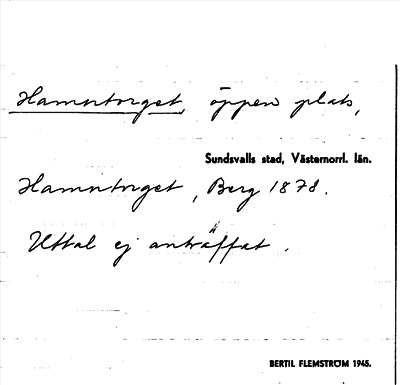 Hamntorget, öppen plats,
Sundsvalls stad, Västernorrl. län.
Hamntorget, Berg 1878.
Uttal ej anträffat.
BERTIL FLEMSTRÖM 1945.